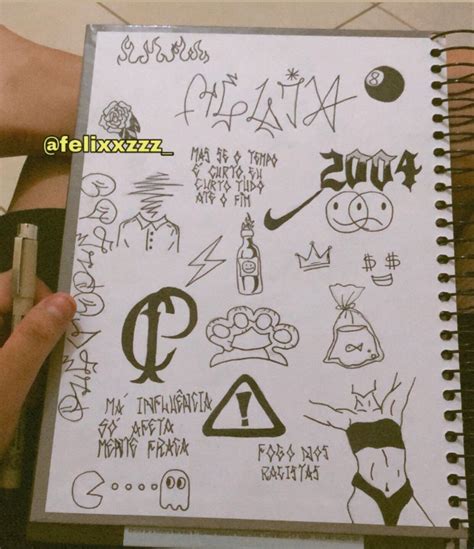 @felixxzzz_
8
MAS SE O TEMPO
É CURTO, EU
CURTO TUDO
ATÉ O FIM
2004
$ $
CP
MÁ INFLUÊNCIA
SÓ AFETA
MENTE FRACA
!
FOGO NOS
RACISTAS